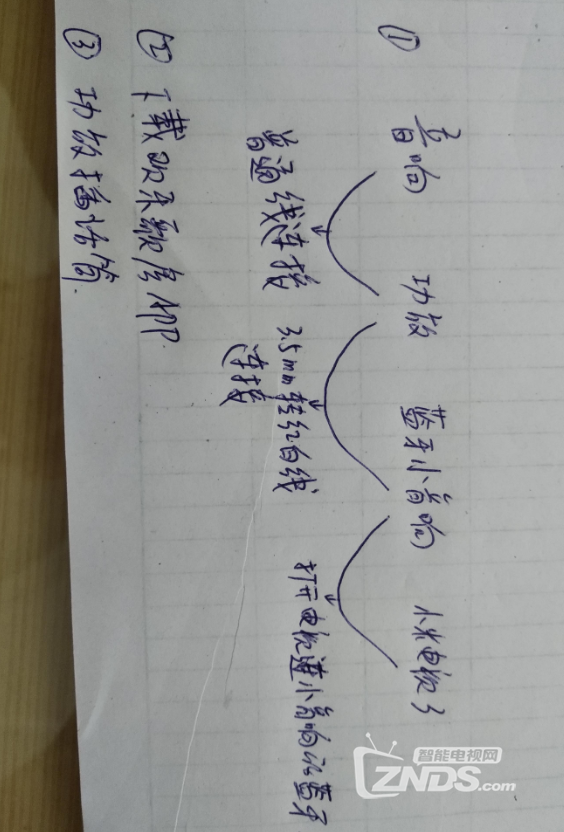 ① 音响 功放 蓝牙小音响 小米电视3
普通线连接
3.5mm转红白线
连接
打开电视连小音响的蓝牙
② 下载欢乐歌房APP
③ 功放插话筒.
智能电视网
ZNDS.com